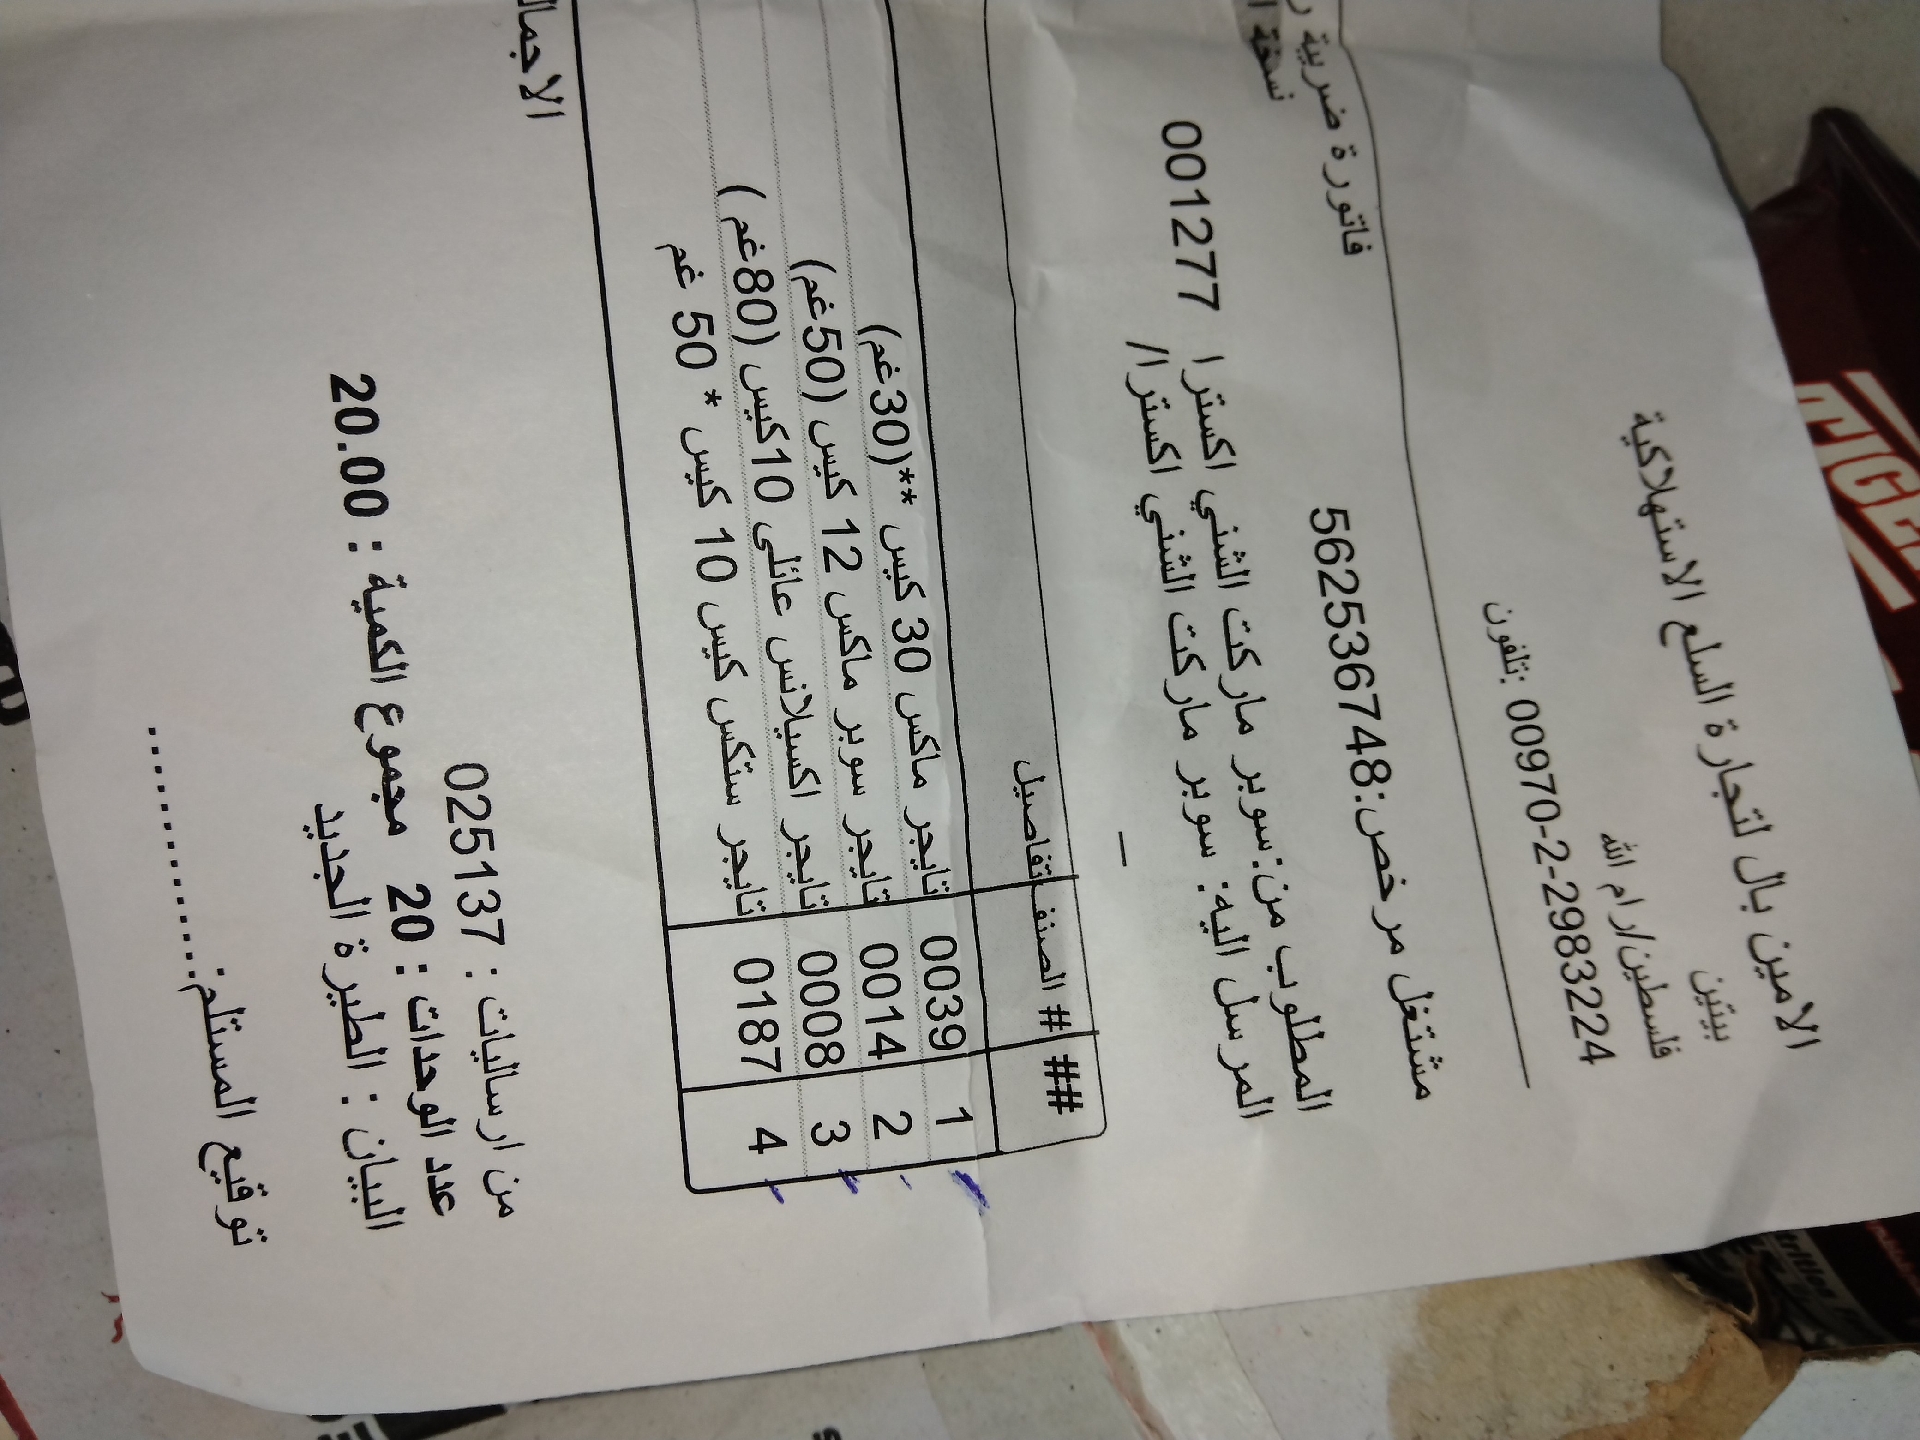 الامين بال لتجارة السلع الاستهلاكية
بيتين
فلسطين/رام الله
تلفون: 00970-2-2983224
مشتغل مرخص:562536748
فاتورة ضريبية
نسخة
المطلوب من:سوبر ماركت الشني اكسترا 001277
المرسل اليه: سوبر ماركت الشني اكسترا/
–
## # الصنف التفاصيل
1 0039 تايجر ماكس 30 كيس **(30غم)
2 0014 تايجر سوبر ماكس 12 كيس (50غم)
3 0008 تايجر اكسيلانس عائلي 10كيس (80غم)
4 0187 تايجر ستكس كيس 10 كيس * 50 غم
من ارساليات : 025137
عدد الوحدات : 20 مجموع الكمية : 20.00
البيان : الطيرة الجديد
توقيع المستلم:............
TIGER